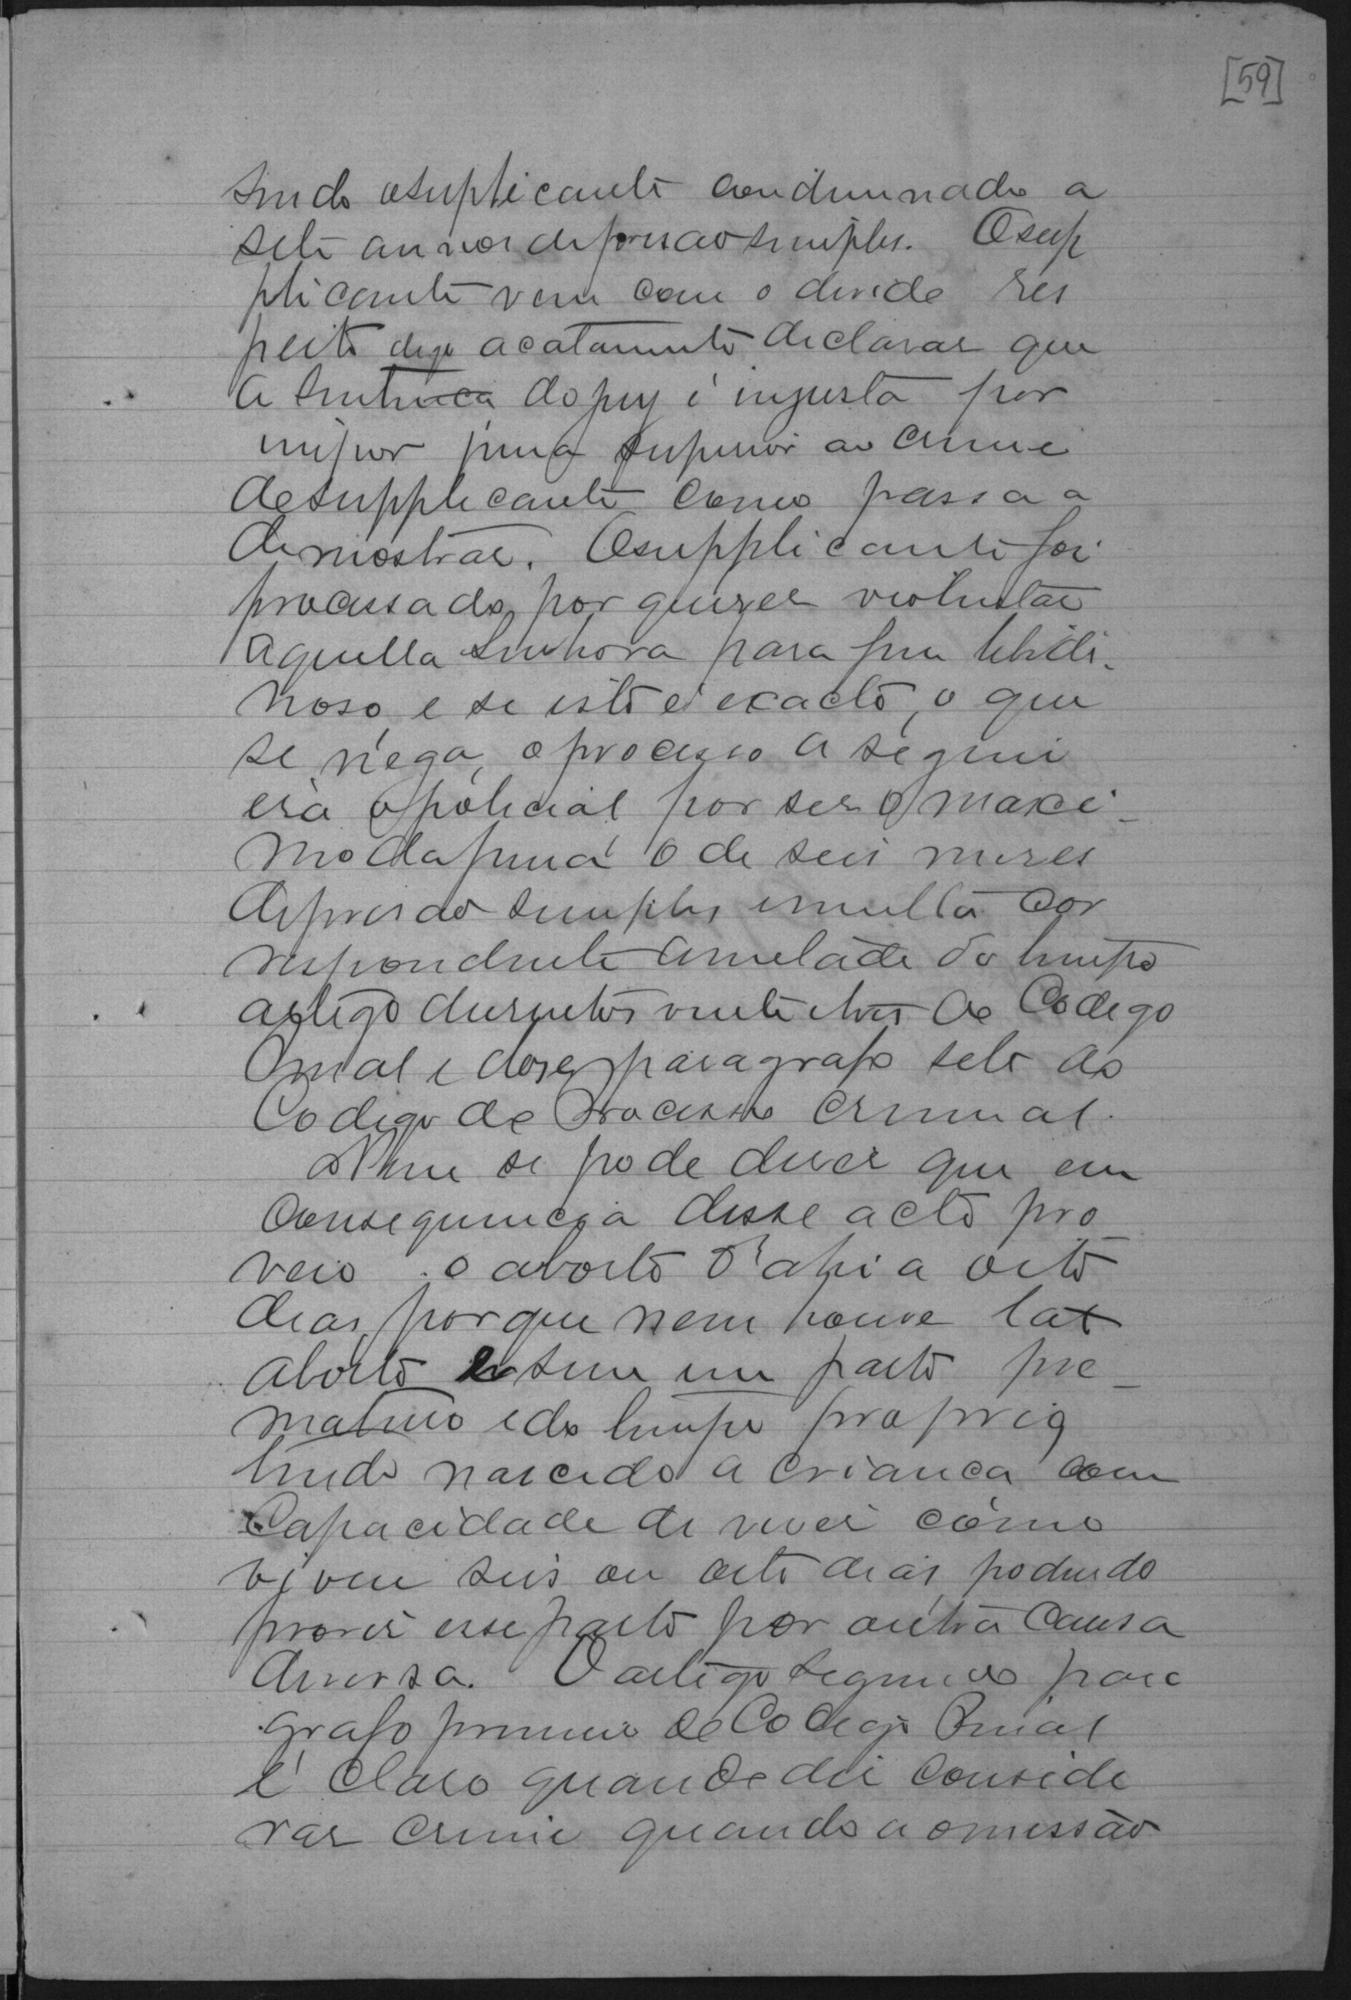 [59]
sendo osuplicante condemnado a
sete annos de prisão simples. Osup
plicante vem com o devido res
peito digo acatamento declarar que
a sentença do juiz é injusta por
impor pena superior ao crime
de supplicante como passa a
demostrar. Osupplicante foi
processado por querer violentar
aquella senhora para fim libidi-
noso, e se isto é exacto, o que
se nega, o processo a seguir
era o policial por ser o maxi-
mo da pena o de seis mezes
de prisão simples e multa cor
respondente a metade do tempo
artigo dusentos vinte e tres do Codigo
Penal e dose paragrafo sete do
Codigo de Processo Criminal.
Nem se pode diser que em
consequencia desse acto pro
veio o aborto d'ahi a oito
dias, porque nem houve tal
aborto e sim um parto pre-
maturo e do tempo proprio
tendo nascido a criança com
capacidade de viver como
viveu seis ou oito dias, podendo
provir esse parto por outra causa
diversa. O artigo segundo para
grafo primeiro do Codigo Penal
é claro quando diz conside
rar crime quando a omissão